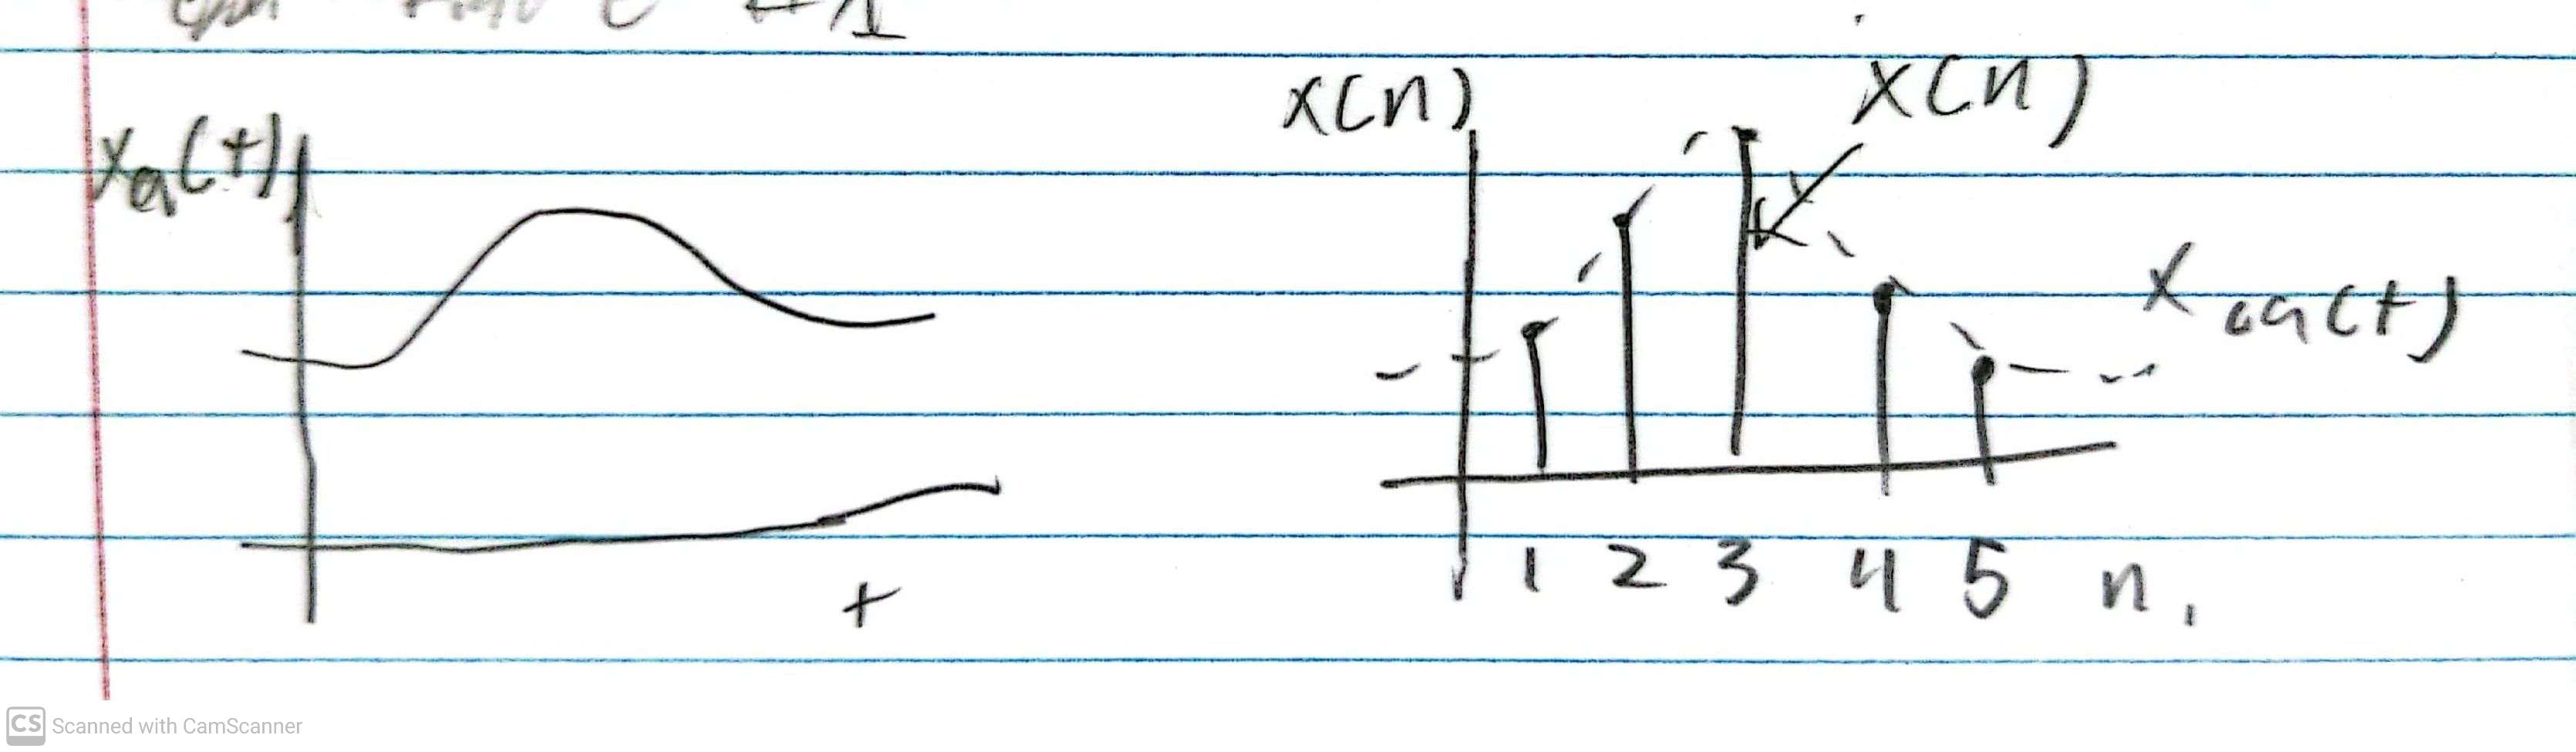 x(n) x(n)
xa(t)
xa(t)
1 2 3 4 5 n
t
CS Scanned with CamScanner